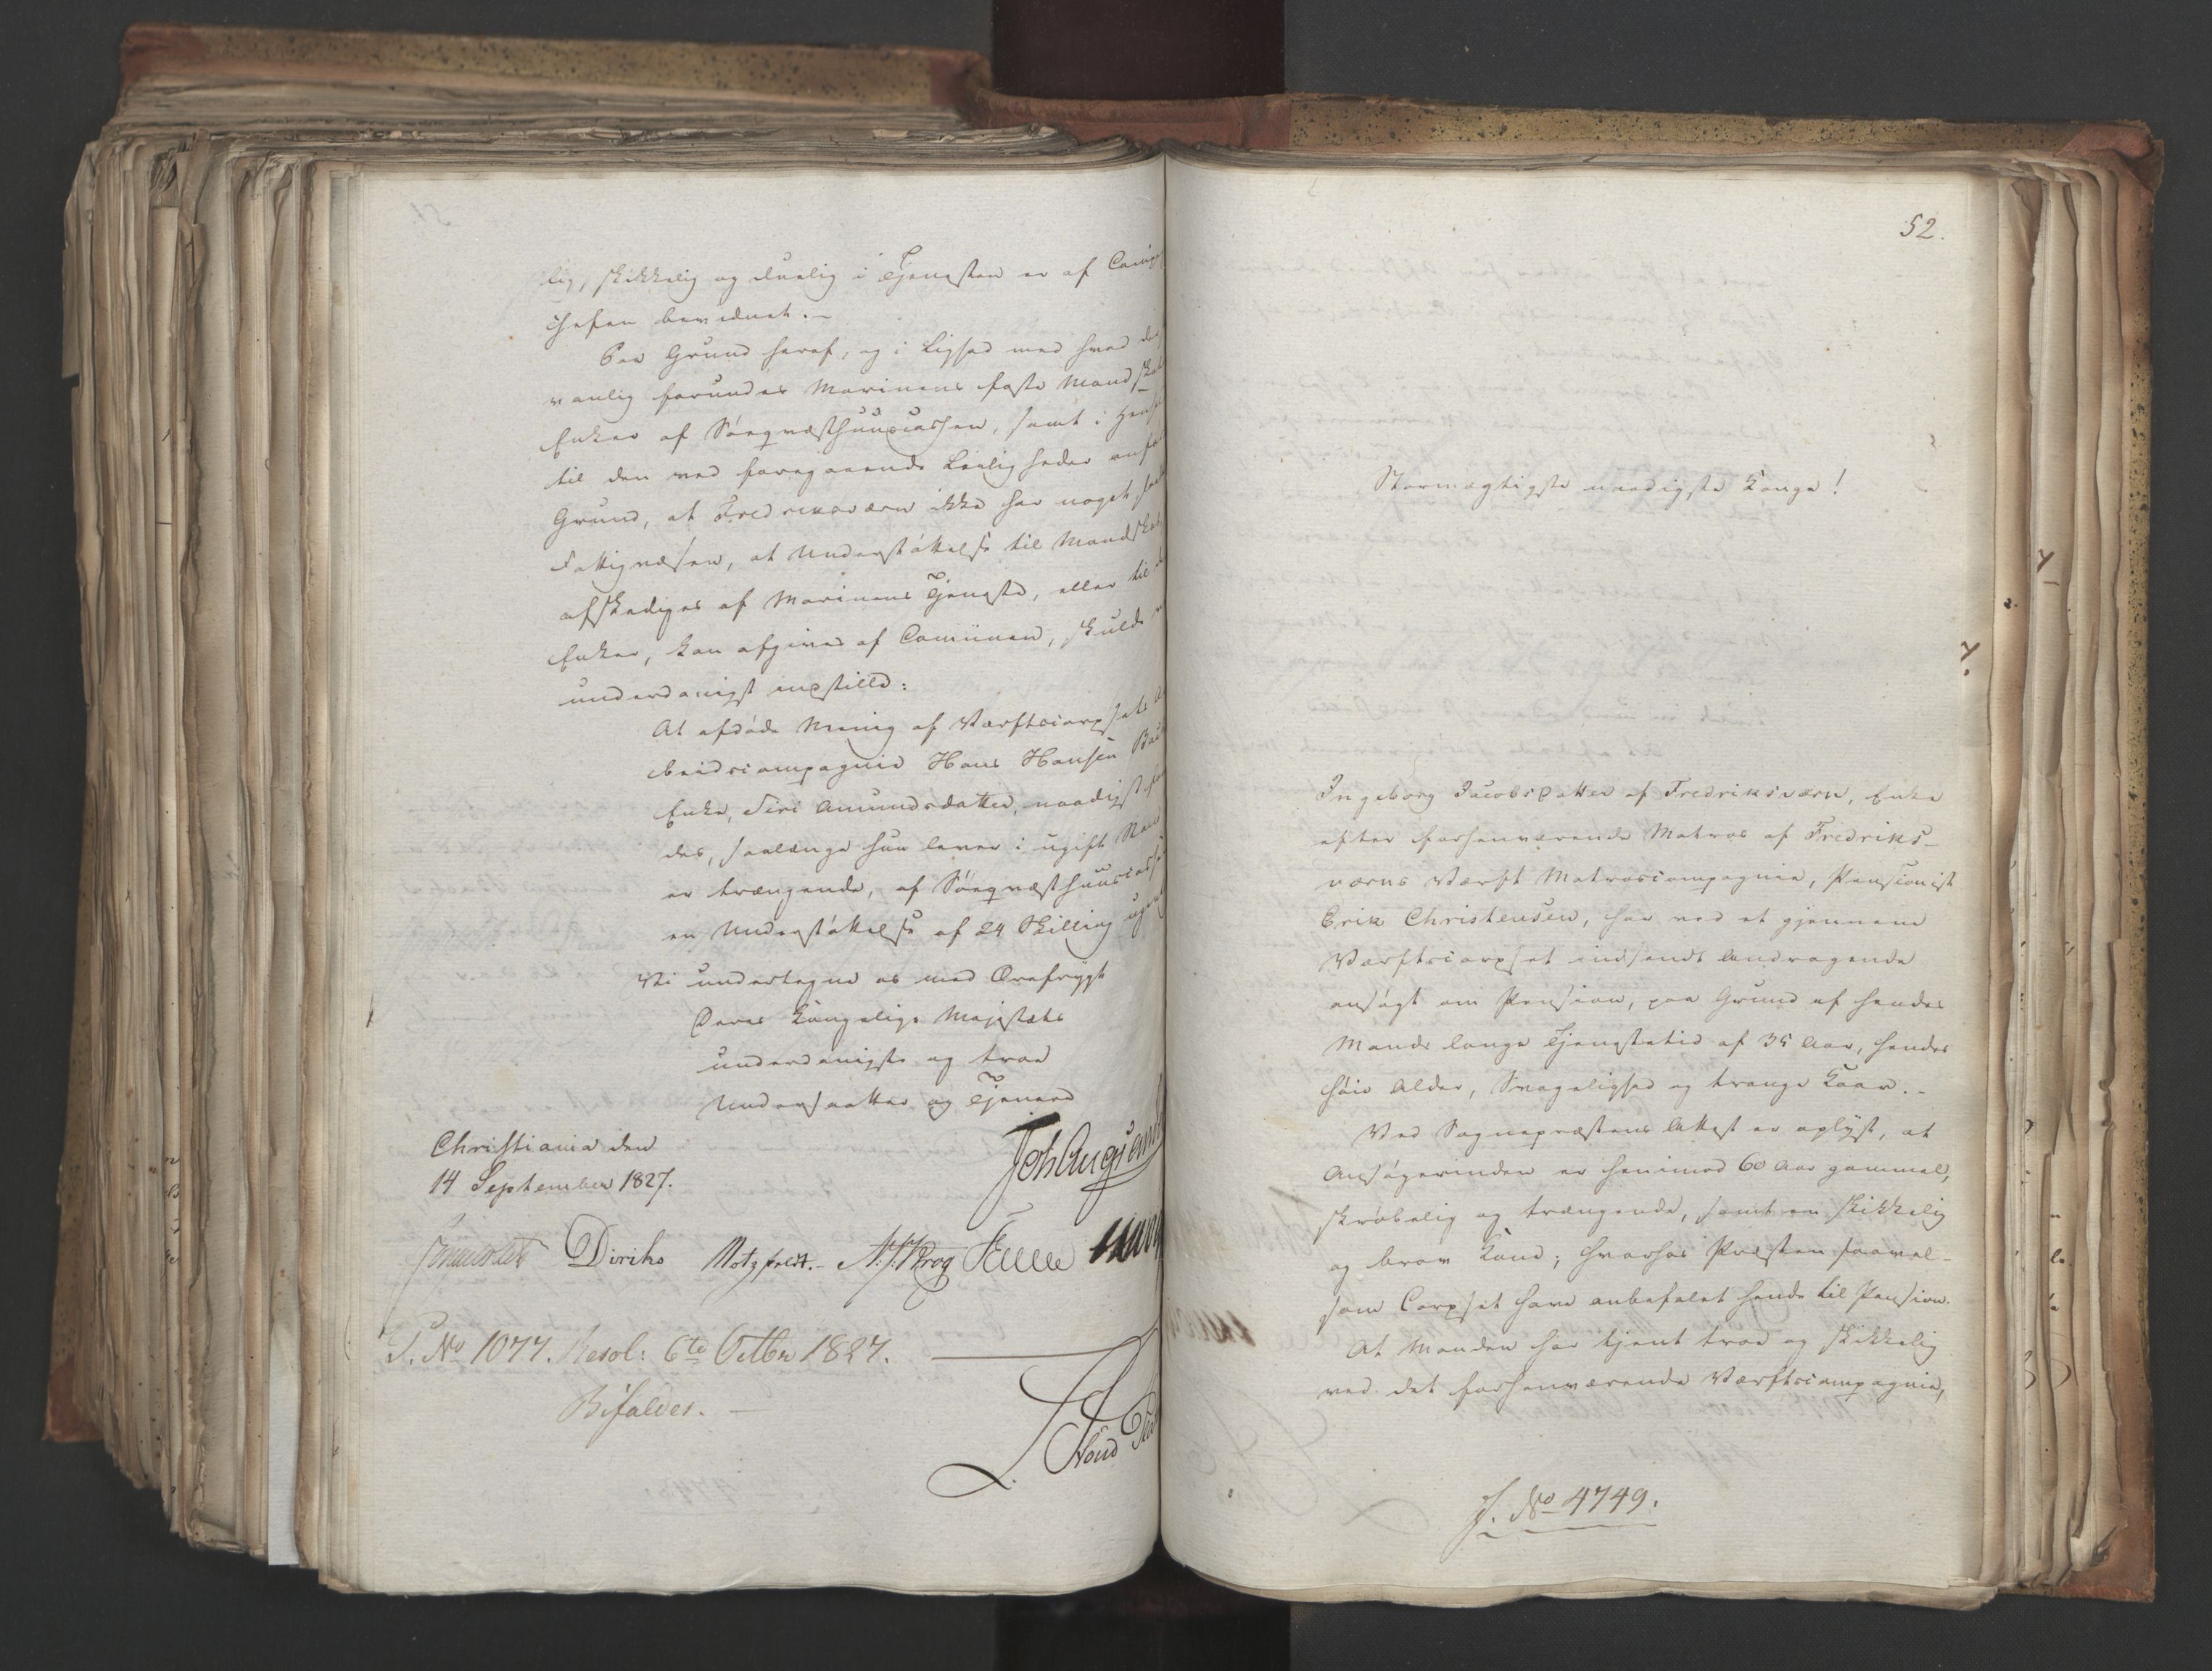 lig, skikkelig og duelig i Tjenesten er af Compag
chefen bevidnet.
Paa Grund heraf, og i Lighed med hvad der
vanlig forundes Marinens faste Mandskabs
Enker af Søeqvæsthuuscassen, samt i Hensyn
til den ved foregaaende Leiligheder anførte
Grund, at Fredriksværn ikke har noget saadant
Fattigvæsen, at Understøttelse til Mandskab
afskediges af Marinens Tjeneste, eller til
Enker, kan afgives af Comünen, skulde
underdanigst indstille:
At afdøde Menig af Værftscorpsets Ar
beidscompagnie Hans Hansen
Enke, Siri Amundsdatter, naadigst
des, saalænge hun lever i ugift Stand
er trængende, af Søeqvæsthuuscassen
en Understøttelse af 24 Skilling ugent
Vi undertegne os med Ærefrygt
Deres Kongelige Majestæts
underdanigste og troe
Undersaatter og Tjenere
Christiania den
14 September 1827.
Joh Aug Sand
Diriks Motzfeldt. Krog
S. No 1077. Resol: 6te Octbr 1827.
Bifaldes.
52.
Stormægtigste naadigste Konge!
Ingeborg Jacobsdatter af Fredriksværn, Enke
efter forhenværende Matros af Fredriks-
værns Værft Matroscompagnie, Pensionist
Erik Christensen, har ved et gjennem
Værftscorpset indsendt Andragende
ansøgt om Pension, paa Grund af hendes
Mands lange Tjenestetid af 35 Aar, hendes
høie Alder, Svagelighed og trange Kaar.
Ved Sognepræstens Attest er oplyst, at
Ansøgerinden er henimod 60 Aar gammel,
skrøbelig og trængende, samt en skikkelig
og brav Kone; hvorhos Præsten saavel-
som Corpset have anbefalet hende til Pension.
At Manden har tjent troe og skikkelig
ved det forhenværende Værftscompagnie,
J. No 4749.